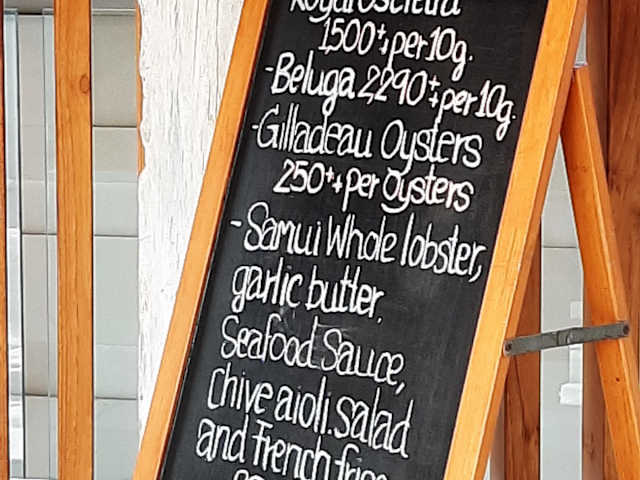 1,500++ per 10g.
-Beluga 2,290++ per 10g.
-Gilladeau Oysters
250++ per oysters
-Samui Whole lobster,
garlic butter,
Seafood Sauce,
Chive aioli. Salad
and french fries